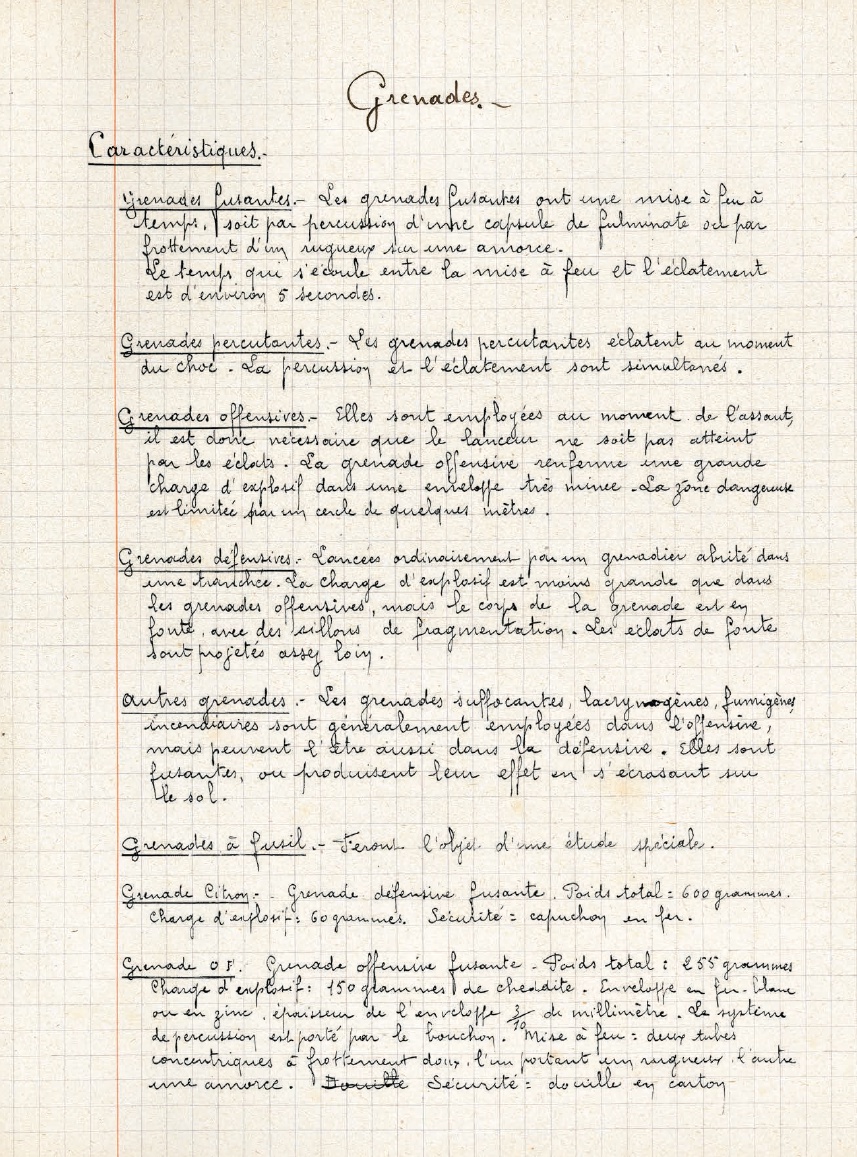 Grenades.-
Caractéristiques.-
Grenades fusantes.- Les grenades fusantes ont une mise à feu à
temps, soit par percussion d'une capsule de fulminate ou par
frottement d'un rugueux sur une amorce.
Le temps qui s'écoule entre la mise à feu et l'éclatement
est d'environ 5 secondes.
Grenades percutantes.- Les grenades percutantes éclatent au moment
du choc. La percussion et l'éclatement sont simultanés.
Grenades offensives.- Elles sont employées au moment de l'assaut,
il est donc nécessaire que le lanceur ne soit pas atteint
par les éclats. La grenade offensive renferme une grande
charge d'explosif dans une enveloppe très mince. La zône dangereuse
est limitée par un cercle de quelques mètres.
Grenades défensives.- Lancées ordinairement par un grenadier abrité dans
une tranchée. La charge d'explosif est moins grande que dans
les grenades offensives, mais le corps de la grenade est en
fonte, avec des sillons de fragmentation. Les éclats de fonte
sont projetés assez loin.
Autres grenades.- Les grenades suffocantes, lacrymogènes, fumigènes,
incendiaires sont généralement employées dans l'offensive,
mais peuvent l'être aussi dans la défensive. Elles sont
fusantes, ou produisent leur effet en s'écrasant sur
le sol.
Grenades à fusil.- Feront l'objet d'une étude spéciale.
Grenade Citron.- Grenade défensive fusante. Poids total = 600 grammes.
Charge d'explosif: 60 grammes. Sécurité = capuchon en fer.
Grenade OF. Grenade offensive fusante. Poids total: 255 grammes
Charge d'explosif: 150 grammes de cheddite. Enveloppe en fer-blanc
ou en zinc, épaisseur de l'enveloppe 3/10 de millimètre. Le système
de percussion est porté par le bouchon. Mise à feu = deux tubes
concentriques à frottement doux, l'un portant un rugueux, l'autre
une amorce. Douille Sécurité = douille en carton